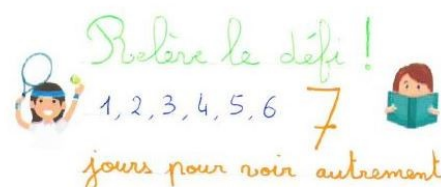 Relève le défi !
1, 2, 3, 4, 5, 6 7
jours pour voir autrement